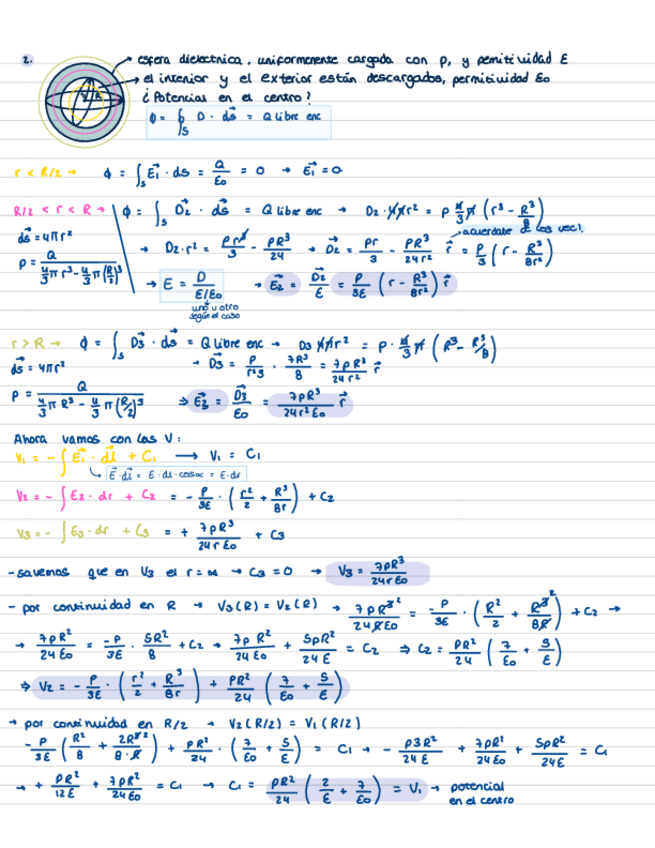 2.
esfera dielectrica, uniformemente cargada con ρ, y permitividad ε
el interior y el exterior están descargados, permitividad ε₀
¿Potencias en el centro?
Φ = ∮_S D · ds⃗ = Q libre enc
r < R/2 → Φ = ∫_S E₁⃗ · ds = Q/ε₀ = 0 → E₁⃗ = 0
R/2 < r < R → Φ = ∫_S D₂⃗ · ds⃗ = Q libre enc → D₂ · 4πr² = ρ 4/3 π (r³ - R³/8)
acuerdate de los vec!
ds⃗ = 4πr²
ρ = Q / (4/3 π r³ - 4/3 π (R/2)³)
→ D₂ · r² = ρr³/3 - ρR³/24 → D₂⃗ = ρr/3 - ρR³/24r² r⃗ = ρ/3 (r - R³/8r²)
→ E = D / (ε/ε₀) → E₂⃗ = D₂⃗/ε = ρ/3ε (r - R³/8r²) r⃗
uno u otro
según el caso
r > R → Φ = ∫_S D₃⃗ · ds⃗ = Q libre enc → D₃ 4πr² = ρ · 4/3 π (R³ - R³/8)
ds⃗ = 4πr²
→ D₃⃗ = ρ/r²3 · 7R³/8 = 7ρR³/24r² r⃗
ρ = Q / (4/3 π R³ - 4/3 π (R/2)³) ⇒ E₃⃗ = D₃⃗/ε₀ = 7ρR³/24r²ε₀ r⃗
Ahora vamos con los V:
V₁ = - ∫ E₁⃗ · dl⃗ + C₁ → V₁ = C₁
E⃗ · dl⃗ = E · dl · cosα = E · dr
V₂ = - ∫ E₂ · dr + C₂ = - ρ/3ε · (r²/2 + R³/8r) + C₂
V₃ = - ∫ E₃ · dr + C₃ = + 7ρR³/24rε₀ + C₃
- savemos que en V₃ el r = ∞ → C₃ = 0 → V₃ = 7ρR³/24rε₀
- por continuidad en R → V₃(R) = V₂(R) → 7ρR³²/24Rε₀ = -ρ/3ε · (R²/2 + R³²/8R) + C₂ →
→ 7ρR²/24ε₀ = -ρ/3ε · 5R²/8 + C₂ → 7ρR²/24ε₀ + 5ρR²/24ε = C₂ ⇒ C₂ = ρR²/24 (7/ε₀ + 5/ε)
⇒ V₂ = - ρ/3ε · (r²/2 + R³/8r) + ρR²/24 (7/ε₀ + 5/ε)
→ por continuidad en R/2 → V₂(R/2) = V₁(R/2)
-ρ/3ε (R²/8 + 2R³²/8·R) + ρR²/24 · (7/ε₀ + 5/ε) = C₁ → - ρ3R²/24ε + 7ρR²/24ε₀ + 5ρR²/24ε = C₁
→ + ρR²/12ε + 7ρR²/24ε₀ = C₁ → C₁ = ρR²/24 (2/ε + 7/ε₀) = V₁ → potencial
en el centro